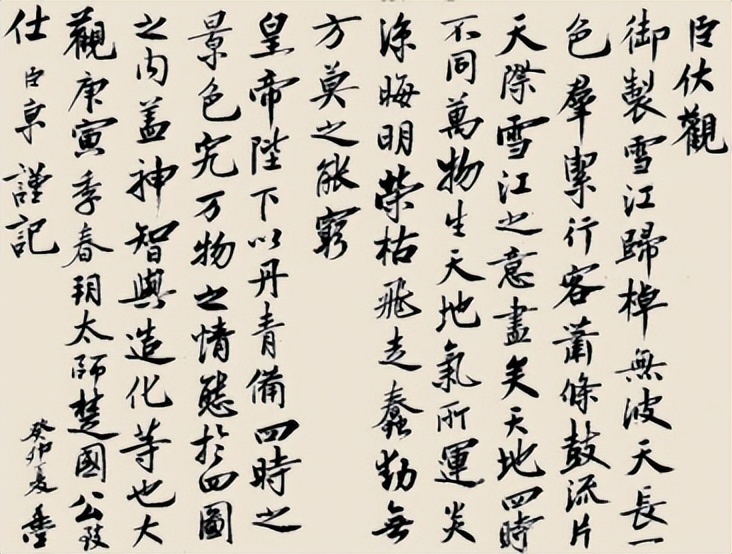 臣伏觀
御製雪江歸棹無波天長一
色羣絜行客蕭條鼓流片
天際雪江之意盡矣天地四時
不同萬物生天地氣所運炎
涼晦明榮枯飛走蠢動無
方莫之能窮
皇帝陛下以丹青備四時之
景色究万物之情態於四圖
之内盖神智與造化等也大
觀庚寅季春朔太師楚國公致
仕臣京謹記
癸卯夏